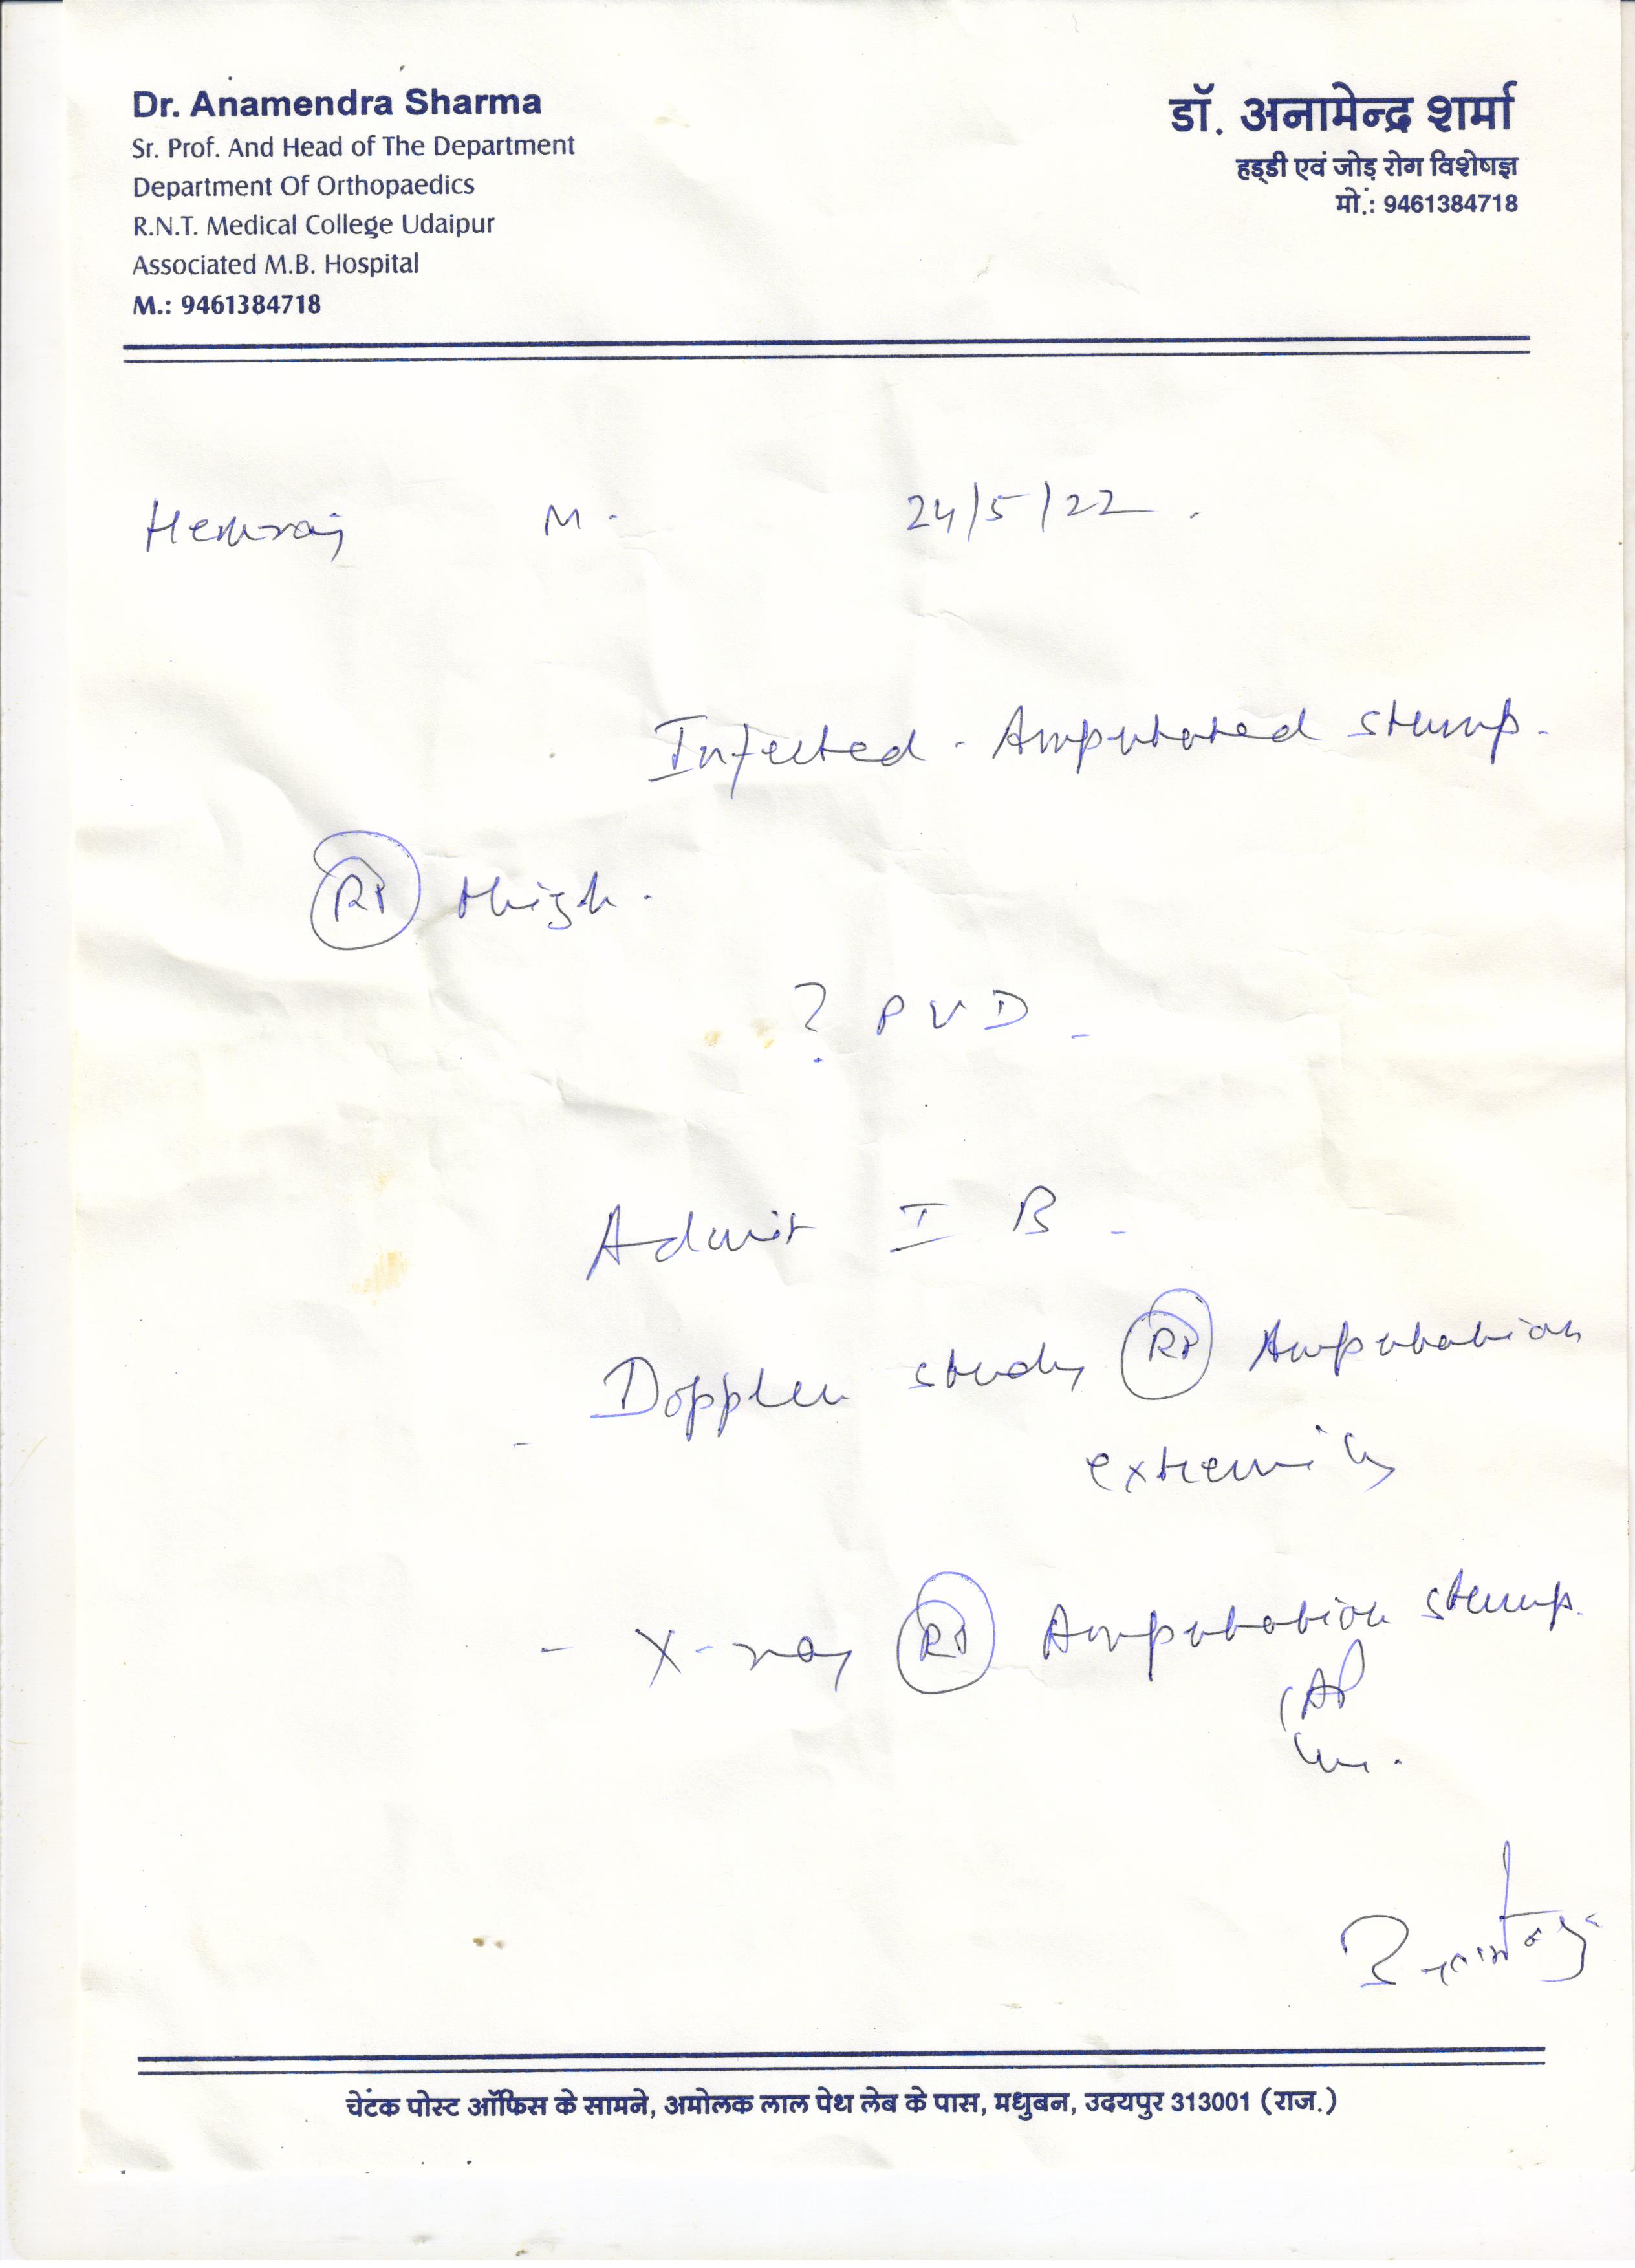 Dr. Anamendra Sharma
Sr. Prof. And Head of The Department
Department Of Orthopaedics
R.N.T. Medical College Udaipur
Associated M.B. Hospital
M.: 9461384718
डॉ. अनामेन्द्र शर्मा
हड्डी एवं जोड़ रोग विशेषज्ञ
मो.: 9461384718
Hemraj M. 24/5/22.
Infected. Amputated stump.
Rt thigh.
? PVD -
Admit I B -
- Doppler study Rt Amputation
extremity
- X-ray Rt Amputation stump.
(AP
चेटंक पोस्ट ऑफिस के सामने, अमोलक लाल पेथ लेब के पास, मधुबन, उदयपुर 313001 (राज.)